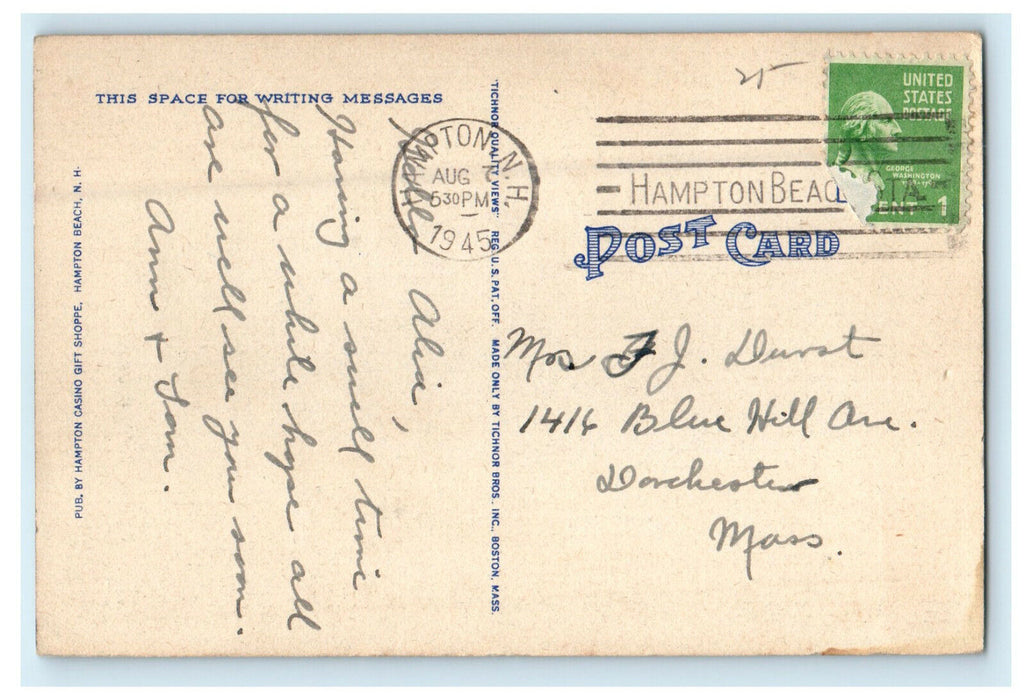 THIS SPACE FOR WRITING MESSAGES
Hello Alice,
Having a swell time
for a while hope all
are well see you soon.
Ann + Sam.
PUB. BY HAMPTON CASINO GIFT SHOPPE, HAMPTON BEACH, N. H.
"TICHNOR QUALITY VIEWS" REG. U. S. PAT. OFF. MADE ONLY BY TICHNOR BROS. INC., BOSTON, MASS.
HAMPTON N.H.
AUG 7
530PM
1945
HAMPTON BEAC
UNITED
STATES
POSTAGE
GEORGE
WASHINGTON
1
POST CARD
Mrs. F J. Durst
1416 Blue Hill Ave.
Dorchester
Mass.